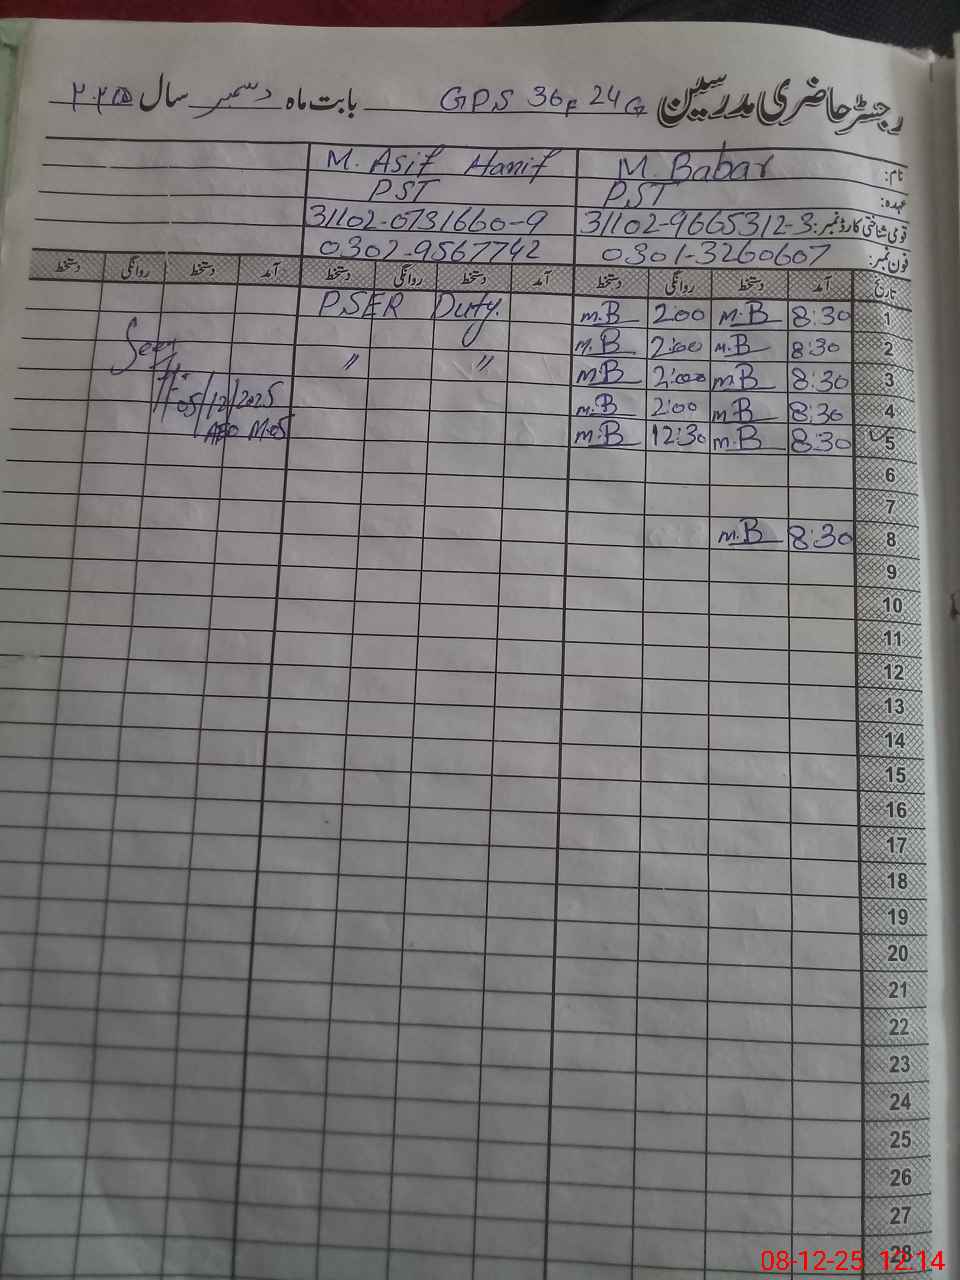 رجسٹر حاضری مدرسین GPS 36F 24G بابت ماہ دسمبر سال ۲۰۲۵
نام: M. Babar M. Asif Hanif
عہدہ: PST PST
قومی شناختی کارڈ نمبر: 31102-9665312-3 31102-0731660-9
فون نمبر: 0301-3260607 0302-9567742
تاریخ آمد دستخط روانگی دستخط آمد دستخط روانگی دستخط آمد دستخط روانگی دستخط
1 8:30 M.B 2:00 M.B PSER Duty.
2 8:30 M.B 2:00 M.B
3 8:30 M.B 2:00 M.B " " Seen
4 8:30 M.B 2:00 M.B 05/12/2025
5 8:30 M.B 12:30 M.B AEO M.05
6
7
8 8:30 M.B
9
10
11
12
13
14
15
16
17
18
19
20
21
22
23
24
25
26
27
28
08-12-25 12:14